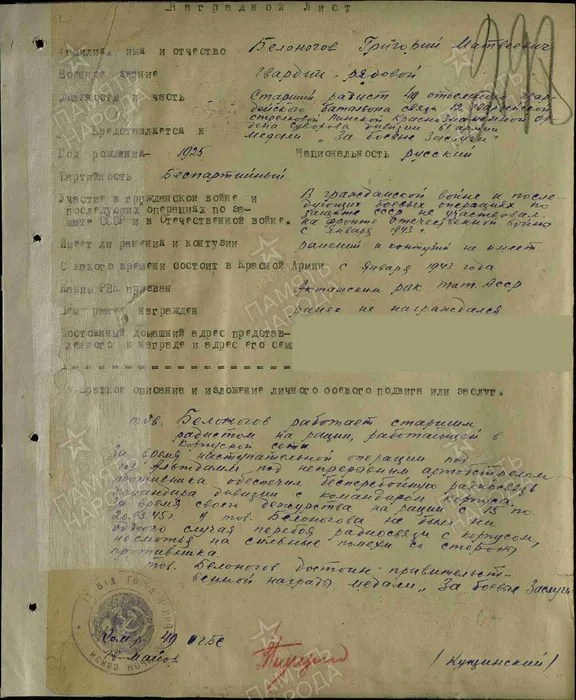 Наградной Лист
Фамилия, имя и отчество Белоногов Григорий Матвеевич
Военное звание Гвардии рядовой
Должность и часть Старший радист 49 отдельного гвар-
дейского батальона связи 12 гвардейской
стрелковой Пинской Краснознаменной ор-
дена Суворова дивизии 61 армии
Представляется к медали „За боевые Заслуги"
Год рождения 1925 Национальность русский
Партийность Беспартийный
Участие в гражданской войне и
последующих операциях по за-
щите СССР и в Отечественной войне.
В гражданской войне и после-
дующих боевых операциях по
защите СССР не участвовал.
на фронте отечественной войны
с Января 1943 г.
Имеет ли ранения и контузии ранений и контузий не имеет
С какого времени состоит в Красной Армии с Января 1943 года
Каким РВК призван Акташским РВК тат. АССР
Чем ранее награжден ранее не награждался
Постоянный домашний адрес представ-
ленного к награде и адрес его сем
Краткое описание и изложение личного боевого подвига или заслуг.
тов. Белоногов работает старшим
радистом на рации, работающей в
корпусной сети
За время наступательной операции под
гор. Альтдамм под непрерывным артобстрелом
противника обеспечил бесперебойную радиосвязь
командира дивизии с командиром корпуса.
За время своего дежурства на рации с 15 по
20.03.45 г. у тов. Белоногова не было ни
одного случая перебоя радиосвязи с корпусом,
несмотря на сильные помехи со стороны
противника.
тов. Белоногов достоин правительст-
венной награды медали „За боевые Заслуги
Ком-р 49
Гв майор /Кущинский/
ПАМЯТЬ НАРОДА
ПАМЯТЬ НАРОДА
ПАМЯТЬ НАРОДА